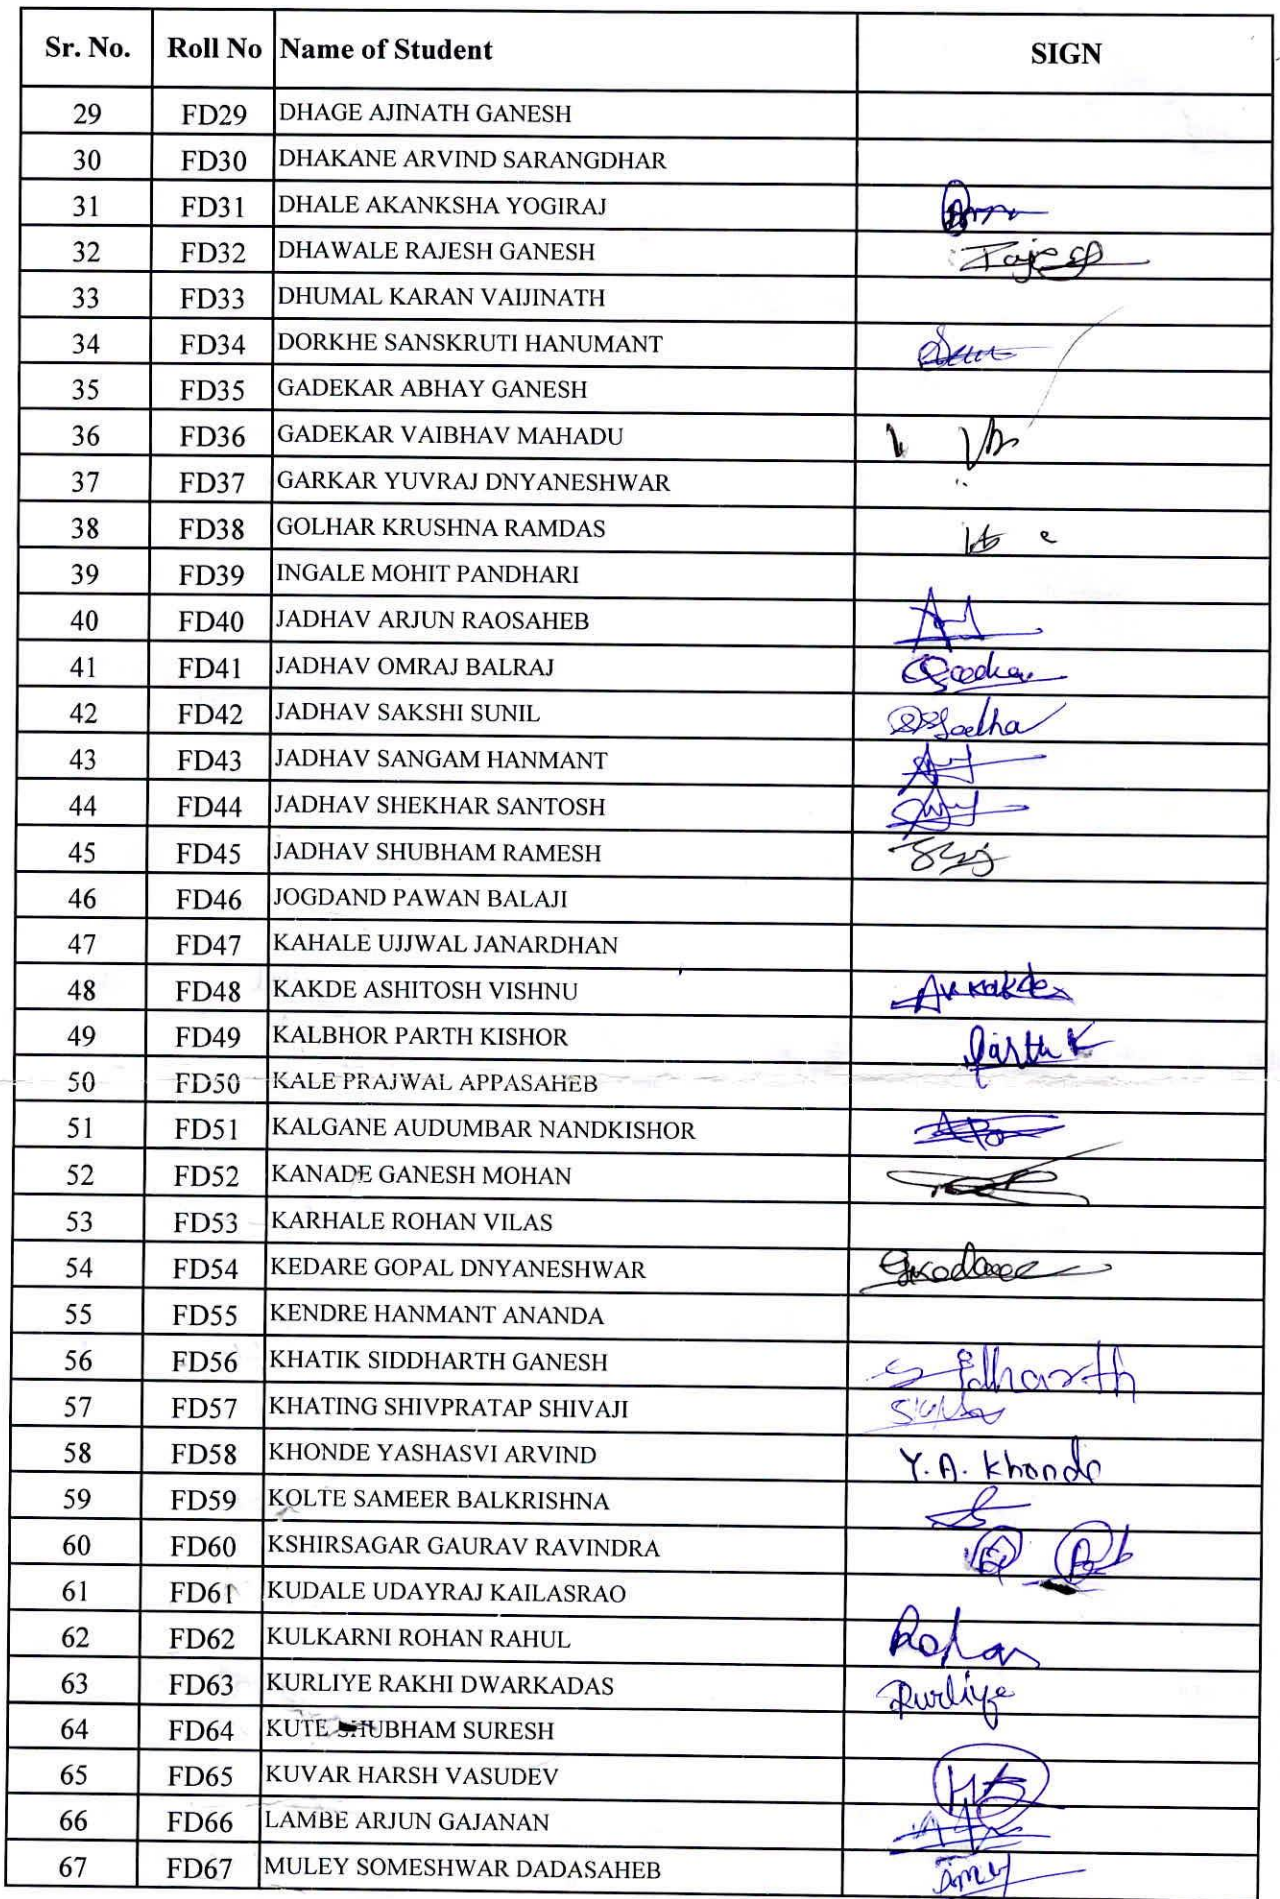 Sr. No. Roll No Name of Student SIGN
29 FD29 DHAGE AJINATH GANESH
30 FD30 DHAKANE ARVIND SARANGDHAR
31 FD31 DHALE AKANKSHA YOGIRAJ
32 FD32 DHAWALE RAJESH GANESH
33 FD33 DHUMAL KARAN VAIJINATH
34 FD34 DORKHE SANSKRUTI HANUMANT
35 FD35 GADEKAR ABHAY GANESH
36 FD36 GADEKAR VAIBHAV MAHADU
37 FD37 GARKAR YUVRAJ DNYANESHWAR
38 FD38 GOLHAR KRUSHNA RAMDAS
39 FD39 INGALE MOHIT PANDHARI
40 FD40 JADHAV ARJUN RAOSAHEB
41 FD41 JADHAV OMRAJ BALRAJ
42 FD42 JADHAV SAKSHI SUNIL
43 FD43 JADHAV SANGAM HANMANT
44 FD44 JADHAV SHEKHAR SANTOSH
45 FD45 JADHAV SHUBHAM RAMESH
46 FD46 JOGDAND PAWAN BALAJI
47 FD47 KAHALE UJJWAL JANARDHAN
48 FD48 KAKDE ASHITOSH VISHNU AVKakde
49 FD49 KALBHOR PARTH KISHOR Parth K
50 FD50 KALE PRAJWAL APPASAHEB
51 FD51 KALGANE AUDUMBAR NANDKISHOR
52 FD52 KANADE GANESH MOHAN
53 FD53 KARHALE ROHAN VILAS
54 FD54 KEDARE GOPAL DNYANESHWAR
55 FD55 KENDRE HANMANT ANANDA
56 FD56 KHATIK SIDDHARTH GANESH
57 FD57 KHATING SHIVPRATAP SHIVAJI
58 FD58 KHONDE YASHASVI ARVIND Y. A. Khonde
59 FD59 KOLTE SAMEER BALKRISHNA
60 FD60 KSHIRSAGAR GAURAV RAVINDRA
61 FD61 KUDALE UDAYRAJ KAILASRAO
62 FD62 KULKARNI ROHAN RAHUL Rohan
63 FD63 KURLIYE RAKHI DWARKADAS Rurliye
64 FD64 KUTE SHUBHAM SURESH
65 FD65 KUVAR HARSH VASUDEV
66 FD66 LAMBE ARJUN GAJANAN
67 FD67 MULEY SOMESHWAR DADASAHEB